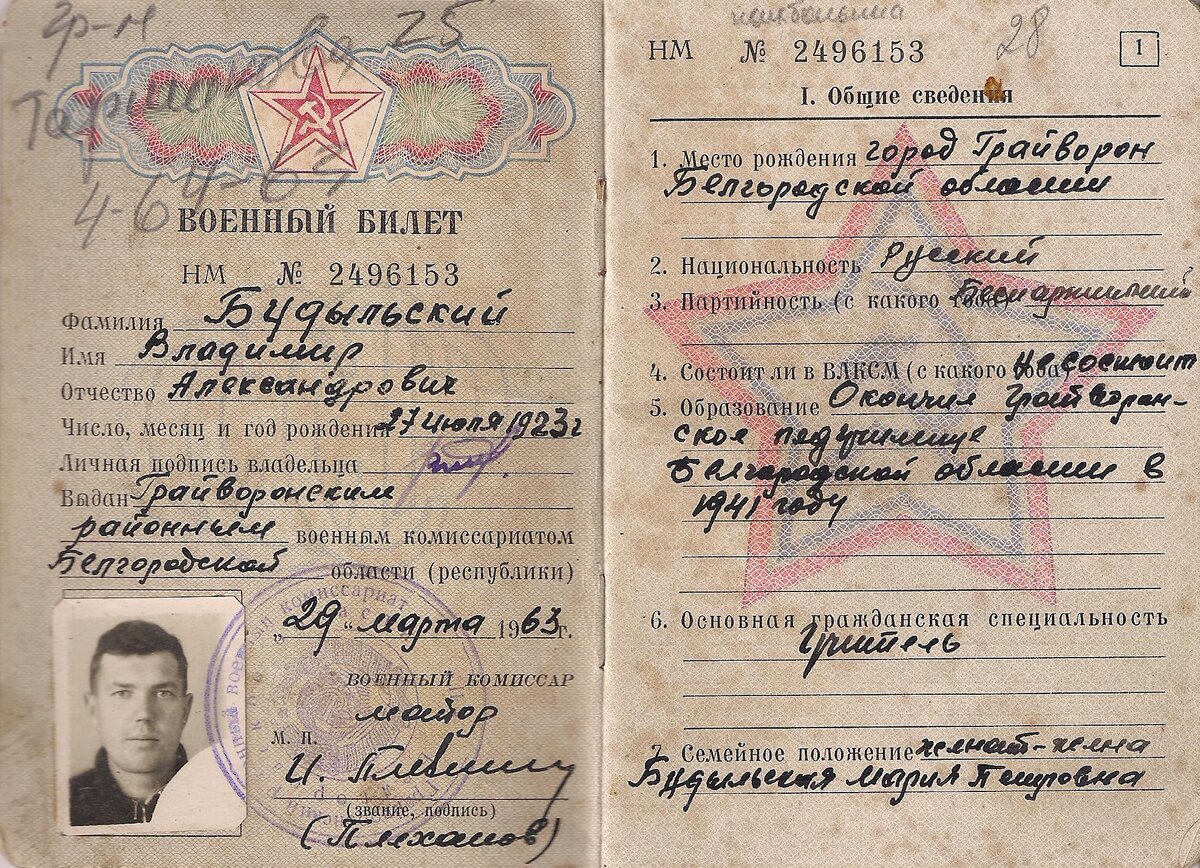 гр-н 25
4-64-67
ВОЕННЫЙ БИЛЕТ
НМ № 2496153
Фамилия Будыльский
Имя Владимир
Отчество Александрович
Число, месяц и год рождения 27 июля 1923г
Личная подпись владельца
Выдан Грайворонским
районным военным комиссариатом
Белгородской области (республики)
„29“ марта 1963г.
ВОЕННЫЙ КОМИССАР
майор
М. П.
(звание, подпись)
(Плеханов)
28
НМ № 2496153
1
I. Общие сведения
1. Место рождения город Грайворон
Белгородской области
2. Национальность Русский
3. Партийность (с какого года) Беспартийный
4. Состоит ли в ВЛКСМ (с какого года) Не состоит
5. Образование Окончил Грайворон-
ское педучилище
Белгородской области в
1941 году
6. Основная гражданская специальность
Учитель
7. Семейное положение женат-жена
Будыльская Мария Петровна